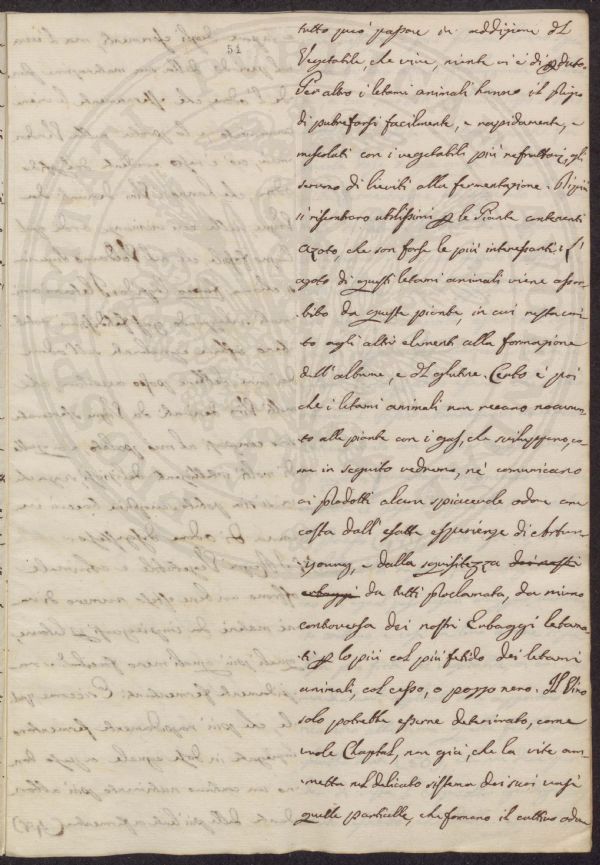 51
tutto può passare in addizione del
Vegetabile, che vive, niente vi è di perduto.
Per altro i letami animali hanno il pregio
di putrefarsi facilmente, e rapidamente, e
mescolati con i vegetabili più refrattarj, gli
servono di lieviti alla fermentazione.
si risentono utilissimi per le Piante contenenti
Azoto, che son forse le più interessanti. L'
azoto di questi letami animali viene assor-
bito da queste piante, in cui resta uni-
to agli altri elementi alla formazione
dell'albume, e del glutine. Certo è poi
che i letami animali non recano nocumen-
to alle piante con i gas, che sviluppano, co-
me in seguito vedremo, nè comunicano
ai prodotti alcun spiacevole odore come
costa dall'esatte esperienze di Arthur
Young, e dalla squisitezza dei nostri
erbaggi da tutti proclamata, da niuno
controversa dei nostri Erbaggi letama-
ti per lo più col più fetido dei letami
animali, col cesso, o pozzo nero. Il Vino
solo potrebbe esserne deteriorato, come
vuole Chaptal, non già, che la vite am-
metta nel delicato sistema dei suoi vasi
quelle particelle, che formano il cattivo odore